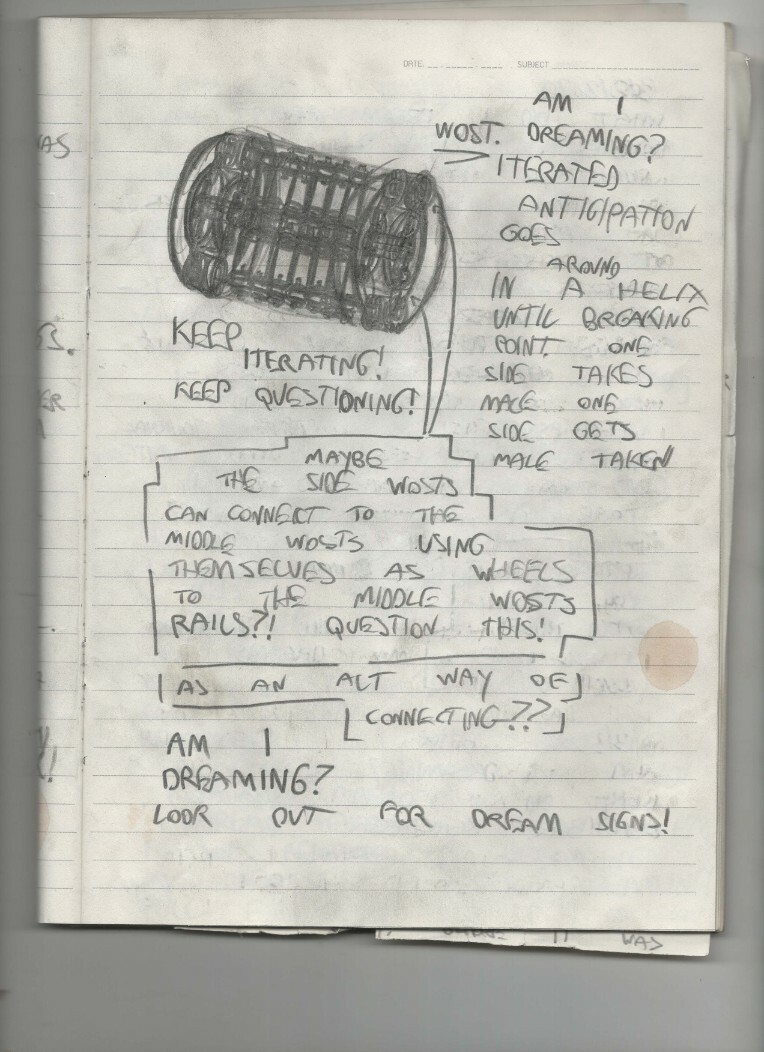 DATE: SUBJECT
AM I
WOST. DREAMING?
ITERATED
ANTICIPATION
GOES
AROUND
IN A HELIX
UNTIL BREAKING
POINT. ONE
SIDE TAKES
MALE ONE
SIDE GETS
MALE TAKEN
KEEP
ITERATING!
KEEP QUESTIONING!
MAYBE
THE SIDE WOSTS
CAN CONNECT TO THE
MIDDLE WOSTS USING
THEMSELVES AS WHEELS
TO THE MIDDLE WOSTS
RAILS?! QUESTION THIS!
AS AN ALT WAY OF
CONNECTING??
AM I
DREAMING?
LOOK OUT FOR DREAM SIGNS!
WAS